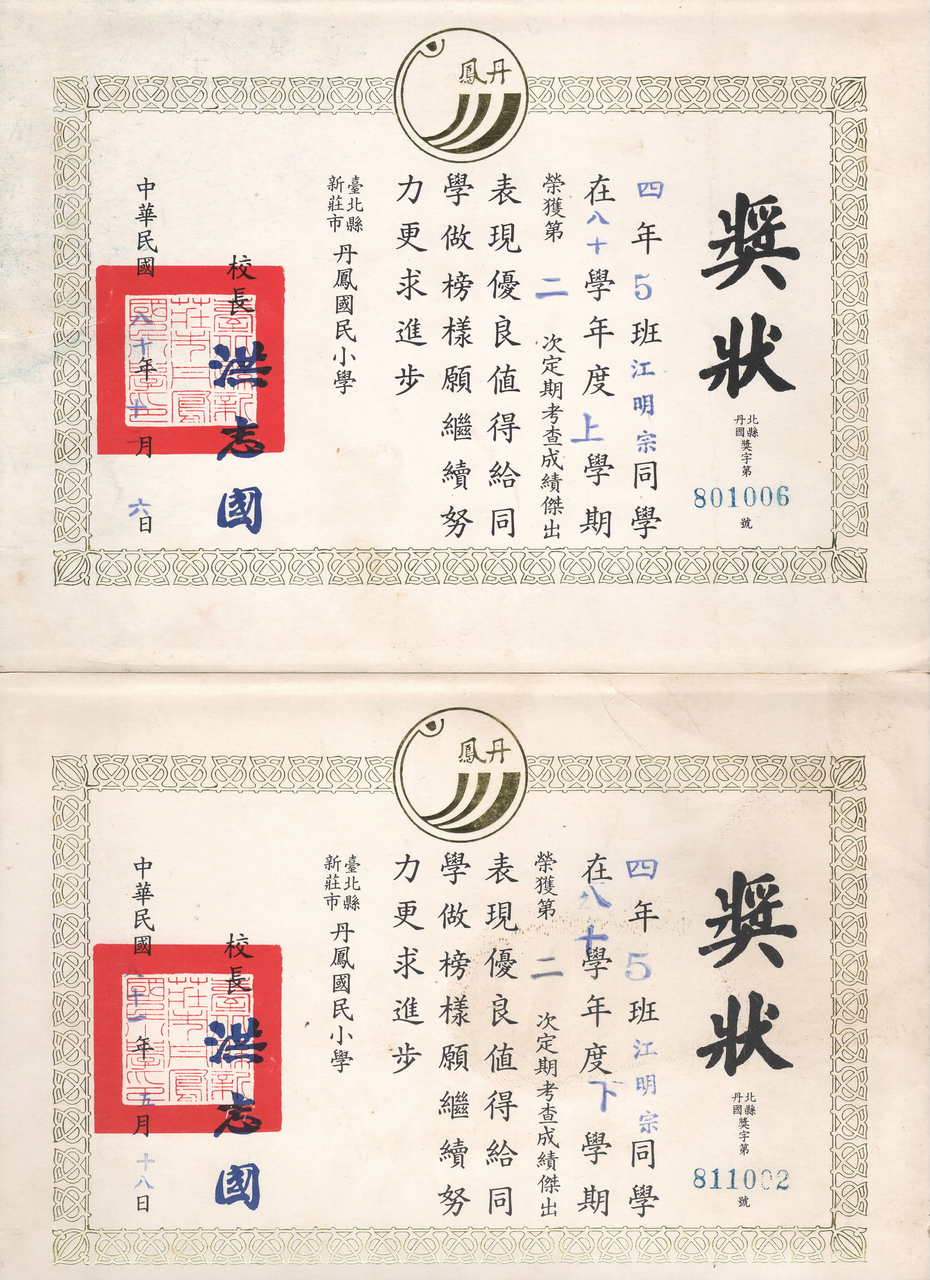 丹鳳
獎狀
北縣
丹國
獎字第
801006
號
四年5班江明宗同學
在八十學年度上學期
榮獲第二次定期考查成績傑出
表現優良值得給同
學做榜樣願繼續努
力更求進步
臺北縣
新莊市
丹鳳國民小學
校長洪志國
中華民國八十年十一月六日
丹鳳
獎狀
北縣
丹國
獎字第
811002
號
四年5班江明宗同學
在八十學年度下學期
榮獲第二次定期考查成績傑出
表現優良值得給同
學做榜樣願繼續努
力更求進步
臺北縣
新莊市
丹鳳國民小學
校長洪志國
中華民國八十一年五月十八日